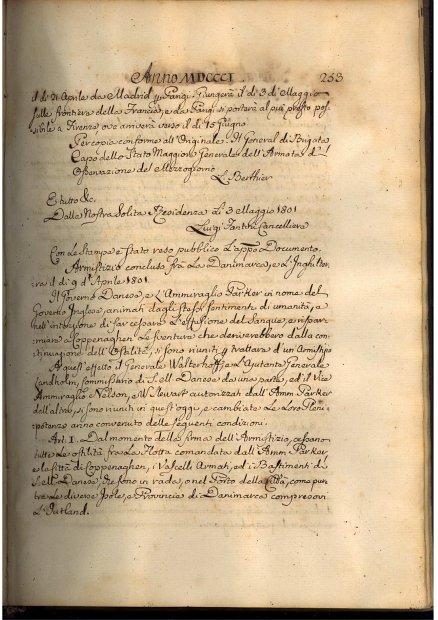 Anno MDCCCI 253
il dì 21 Aprile da Madrid p Parigi. Giungerà il dì 3 di Maggio
sulle frontiere della Francia, e da Parigi si porterà al più presto pos
sibile a Firenze ove arriverà verso il dì 15 Giugno
Per copia conforme all'Originale. Il General di Brigata
Capo dello Stato Maggiore Generale dell'Armata d'
Osservazione del Mezzogiorno
L. Berthier
E tutto &c.
Dalla Nostra Solita Residenza al 3 Maggio 1801
Luigi Fantini Cancelliere
Con le Stampe è stato reso pubblico l'appo Documento.
Armistizio concluso fra la Danimarca, e l'Inghilter
ra il dì 9 d'Aprile 1801.
Il Governo Danese, e l'Ammiraglio Parker in nome del
Governo Inglese, animati dagli stessi sentimenti di umanità, e
nell'intenzione di far cessare l'effusione del Sangue, e risspar
miare a Coppenaghen le sventure che deriverebbero dalla con
tinuazione dell'Ostilità, si sono riuniti p trattare d'un Armistizio
A quest'effetto il Generale Walterstorff, e l'Ajutante Generale
Lindholm, Commissario di S. M. Danese da una parte, ed il Vice
Ammiraglio Nelson, e W. Stewart autorizzati dall'Amm. Parker
dell'altra, si sono riuniti in quest'oggi, e cambiate le loro Pleni
potenze anno convenuto delle seguenti condizioni.
Art. I. Dal momento della firma dell'Armistizio, cessano
tutte le ostilità fra la Flotta comandata dall'Amm. Parker,
e la Città di Coppenaghen, i Vascelli Armati, ed i Bastimenti di
S. M. Danese, che sono in rada, o nel Porto della Città, come pur
tra le diverse Isole, e Provincie di Danimarca compresovi
l'Jutland.